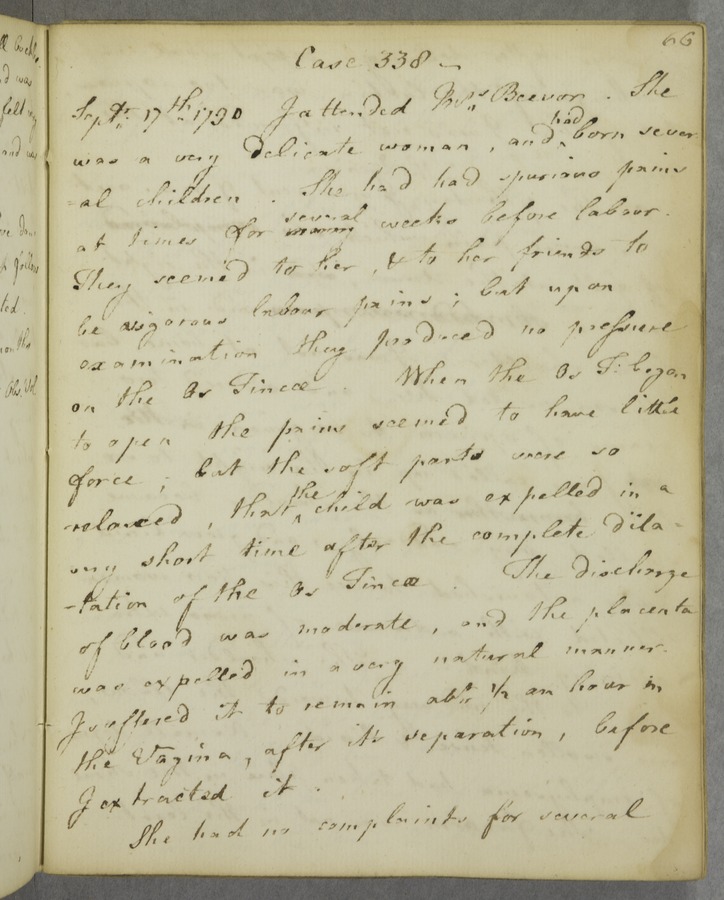 66
Case 338
Septr. 17th. 1790 I attended Mrs. Beevor. She
was a very delicate woman, and had born sever
-al children. She had had spurious pains
at times for several weeks before labour.
They seemed to her, & to her friends to
be vigorous labour pains; but upon
examination they produced no pressure
on the Os Tincæ. When the Os T: began
to open the pains seemed to have little
force; but the soft parts were so
relaxed, that the child was expelled in a
very short time after the complete dila-
-tation of the Os Tincæ. The discharge
of blood was moderate, and the placenta
was expelled in a very natural manner.
I suffered it to remain abt. 1/2 an hour in
the Vagina, after it's separation, before
I extracted it.
She had no complaints for several